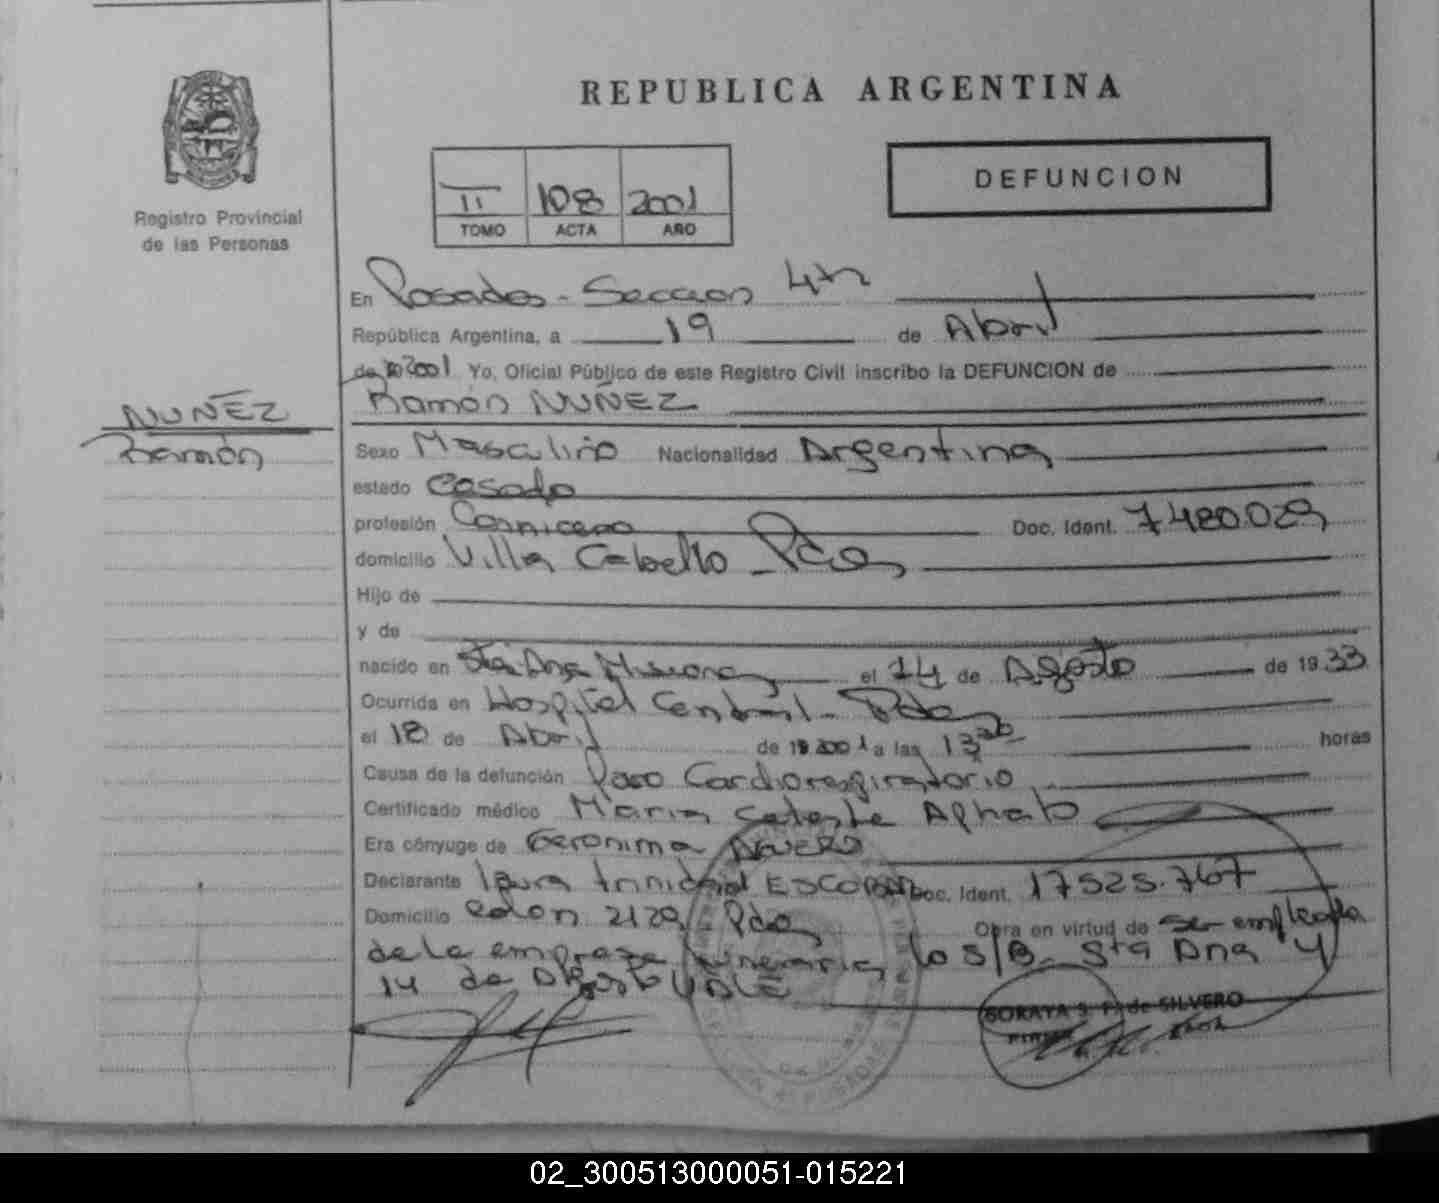 REPUBLICA ARGENTINA
Registro Provincial
de las Personas
II 108 2001
TOMO ACTA AÑO
DEFUNCION
NUÑEZ
Ramón
En Posadas - Seccion 4ta
República Argentina, a 19 de Abril
de 2001 Yo, Oficial Público de este Registro Civil inscribo la DEFUNCION de
Ramón NUÑEZ
Sexo Masculino Nacionalidad Argentina
estado Casado
profesión Carnicero Doc. Ident. 7480.029
domicilio Villa Cabello - Pdas
Hijo de
y de
nacido en Sta. Ana Misiones el 14 de Agosto de 1933
Ocurrida en Hospital Central - Pdas
el 18 de Abril de 2001 a las 13 horas
Causa de la defunción Paro Cardiorespiratorio
Certificado médico Maria Celeste
Era cónyuge de Geronima
Declarante Laura trinidad ESCOBAR Doc. Ident. 17525.767
Domicilio Colon 2129 Pdas Obra en virtud de ser empleada
de la empresa funeraria lo S/B. Sta Ana y
14 de Agosto VALE
SORAYA S. F. de SILVERO
02_300513000051-015221